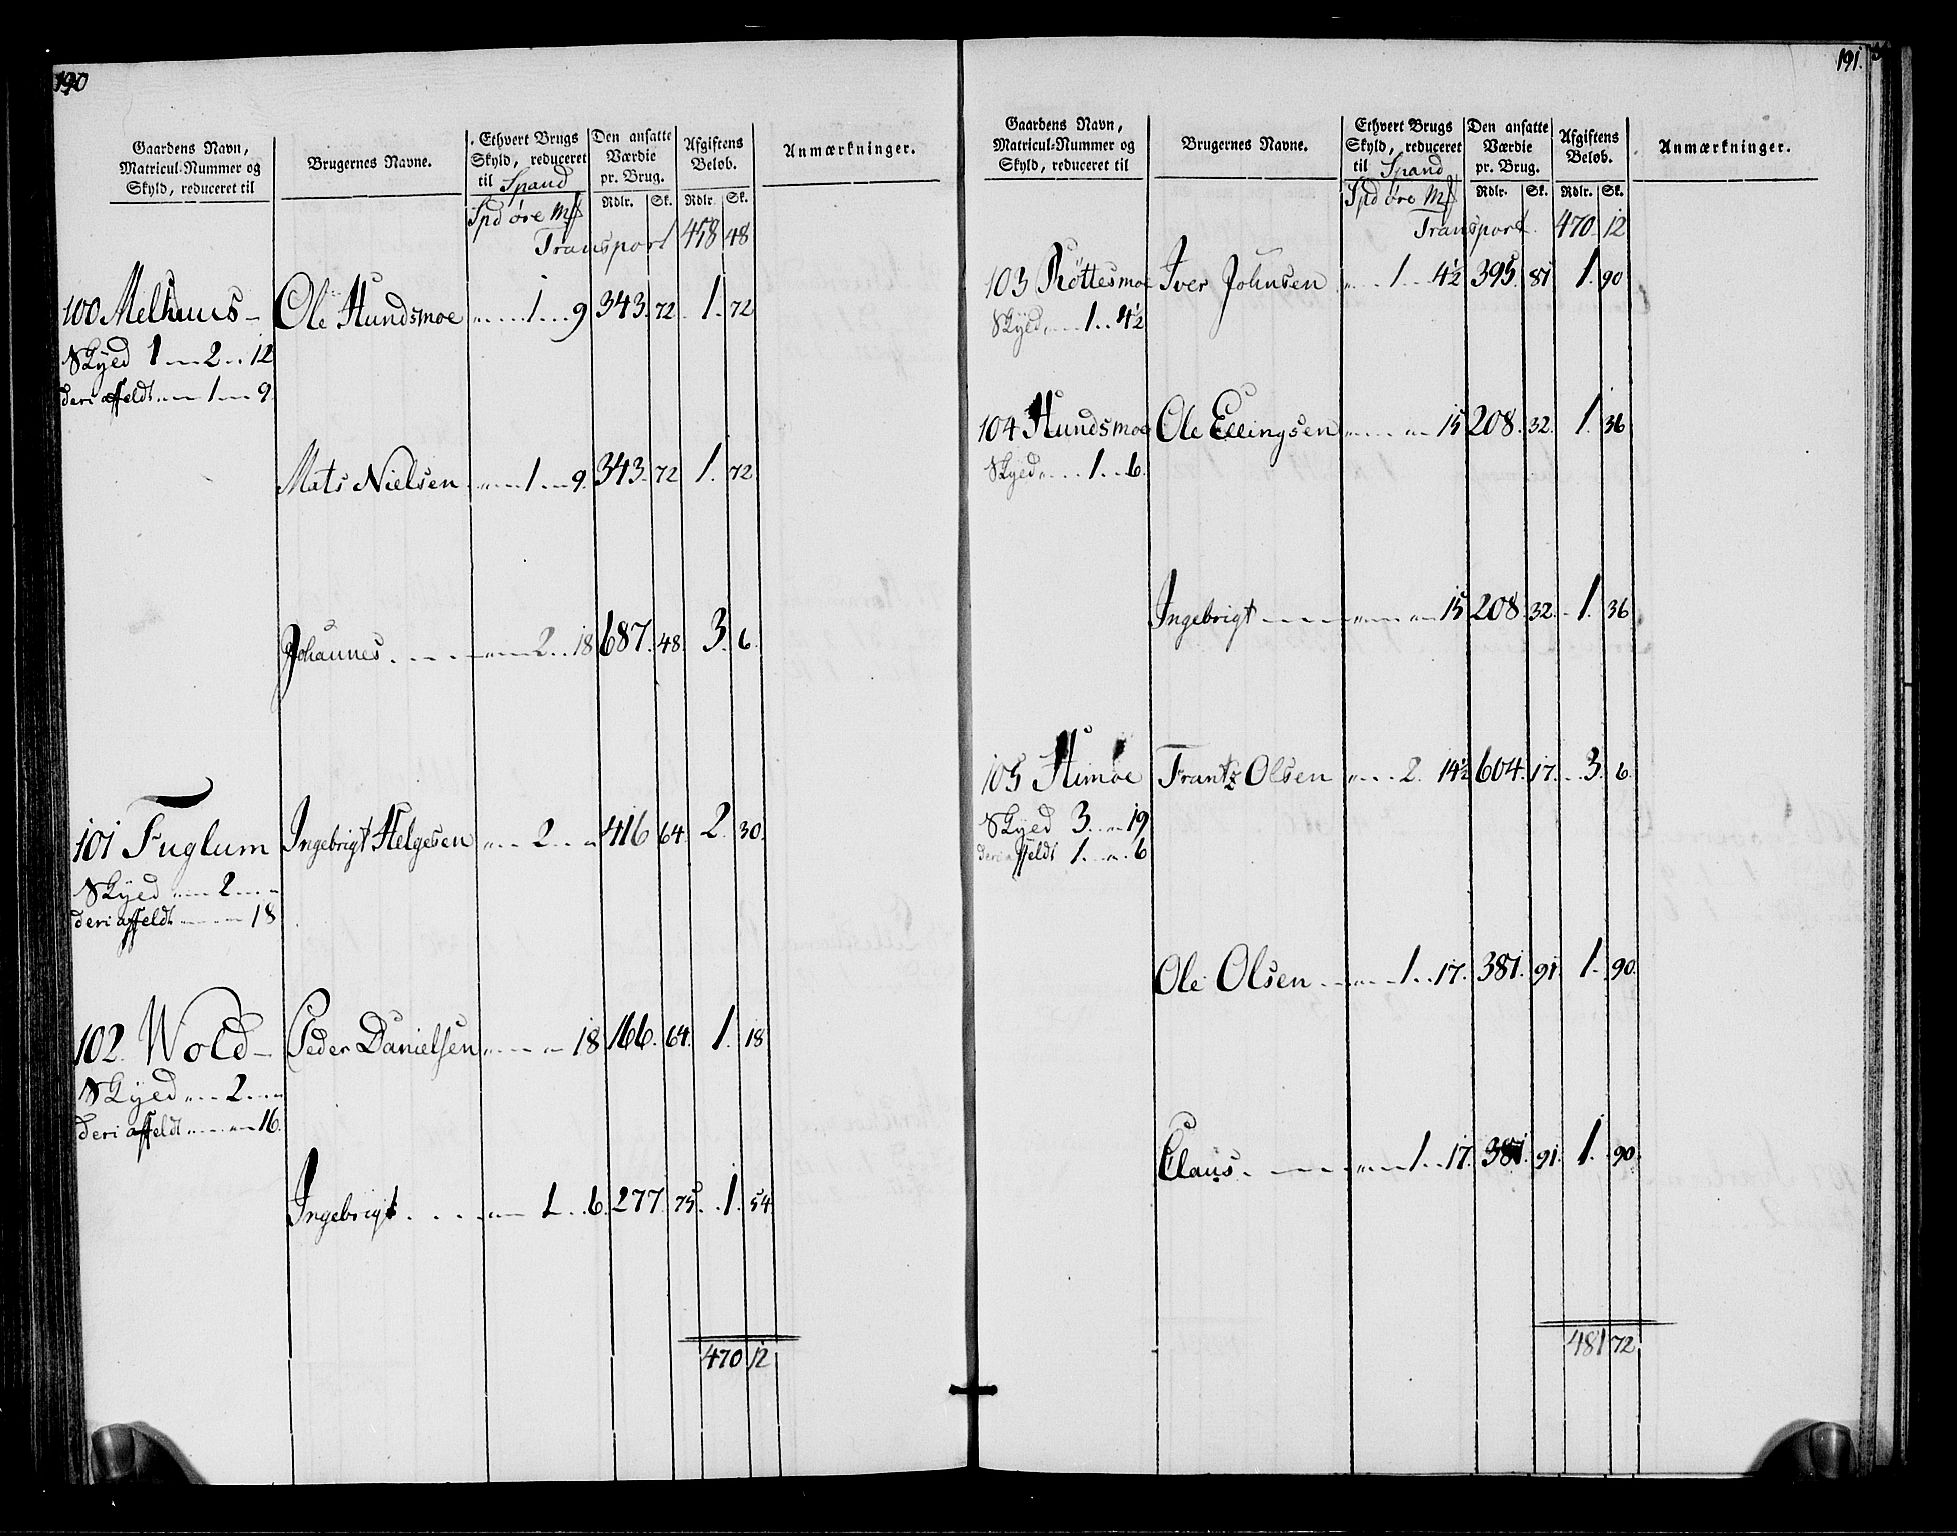 190
Gaardens Navn, Matricul-Nummer og Skyld, reduceret til
Brugernes Navne.
Ethvert Brugs Skyld, reduceret til Spand
Den ansatte Værdie pr. Brug.
Afgiftens Beløb.
Anmærkninger.
Spd øre Mk Rdlr. Sk. Rdlr. Sk.
Transport 458 48
100 Melhuus - Ole Hundsmoe „ 1 9 343. 72 1. 72
Skyld 1 2 12
deri affeldt 1 9
Mats Nielsen 1 9. 343. 72 1. 72
Johannes 2 18 687. 48. 3. 6.
101 Fuglum Ingebrigt Helgesen 2 „ 416 64 2. 30.
Skyld 2 „
deri affeldt 18
102. Wold - Peder Danielsen 18 166. 64. 1. 18
Skyld 2 „
deri affeldt 16.
Ingebrigt 1 6. 277. 75. 1. 54
470 12
191.
Gaardens Navn, Matricul-Nummer og Skyld, reduceret til
Brugernes Navne.
Ethvert Brugs Skyld, reduceret til Spand
Den ansatte Værdie pr. Brug.
Afgiftens Beløb.
Anmærkninger.
Spd øre Mk Rdlr. Sk. Rdlr. Sk.
Transport. 470. 12
103 Røttesmoe Iver Johnsen 1 4½ 395. 87 1. 90
Skyld 1 4½
104 Hundsmoe Ole Ellingsen 15 208. 32. 1. 36
Skyld 1 6.
Ingebrigt 15 208. 32. 1. 36.
105 Himoe Frantz Olsen 2. 14½ 604. 17. 3. 6.
Skyld 3 19
deri affeldt 1 6
Ole Olsen 1 17. 381. 91. 1. 90.
Claus 1 17. 381. 91. 1. 90.
481 72